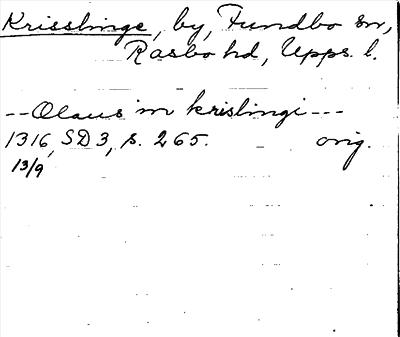 Krisslinge, by, Fundbo sn,
Rasbo hd, Upps. l.
--Olaus in krislingi---
1316, SD3, s. 265. orig.
13/9